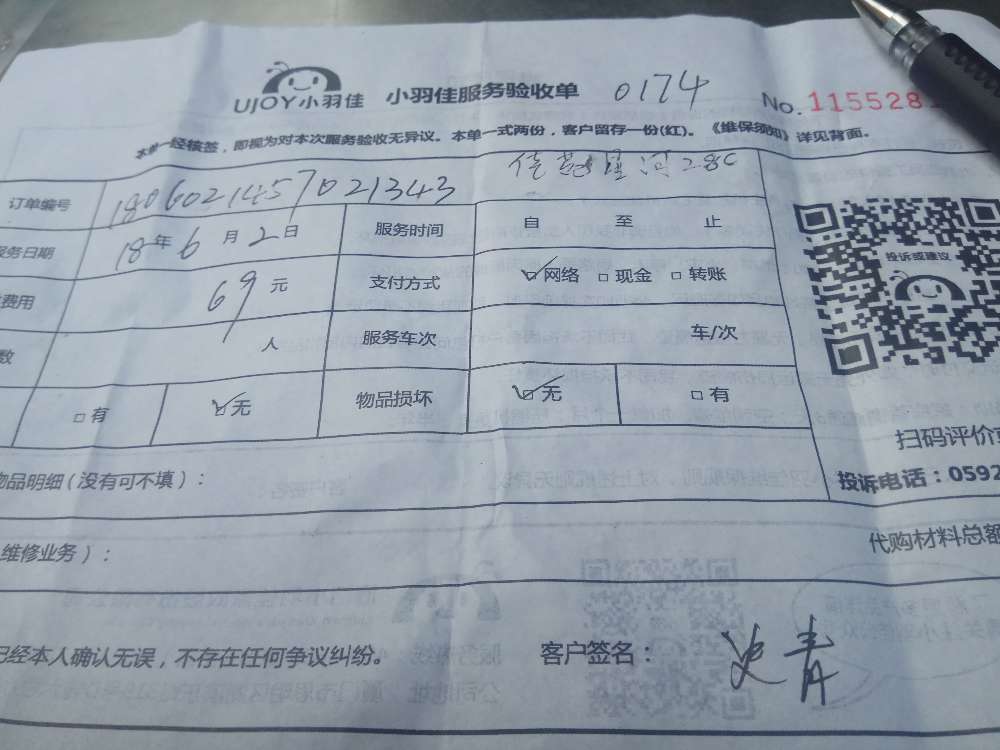 UJOY小羽佳 小羽佳服务验收单 0174 No. 1155281
本单一经核签，即视为对本次服务验收无异议。本单一式两份，客户留存一份(红)。《维保须知》详见背面。
订单编号 1806021457021343 28C
服务日期 18年6月2日 服务时间 自 至 止
费用 69元 支付方式 ☑网络 □现金 □转账
数 人 服务车次 车/次
□有 ☑无 物品损坏 ☑无 □有
投诉或建议
扫码评价
投诉电话：0592
物品明细（没有可不填）：
代购材料总额
维修业务）：
已经本人确认无误，不存在任何争议纠纷。 客户签名：史青